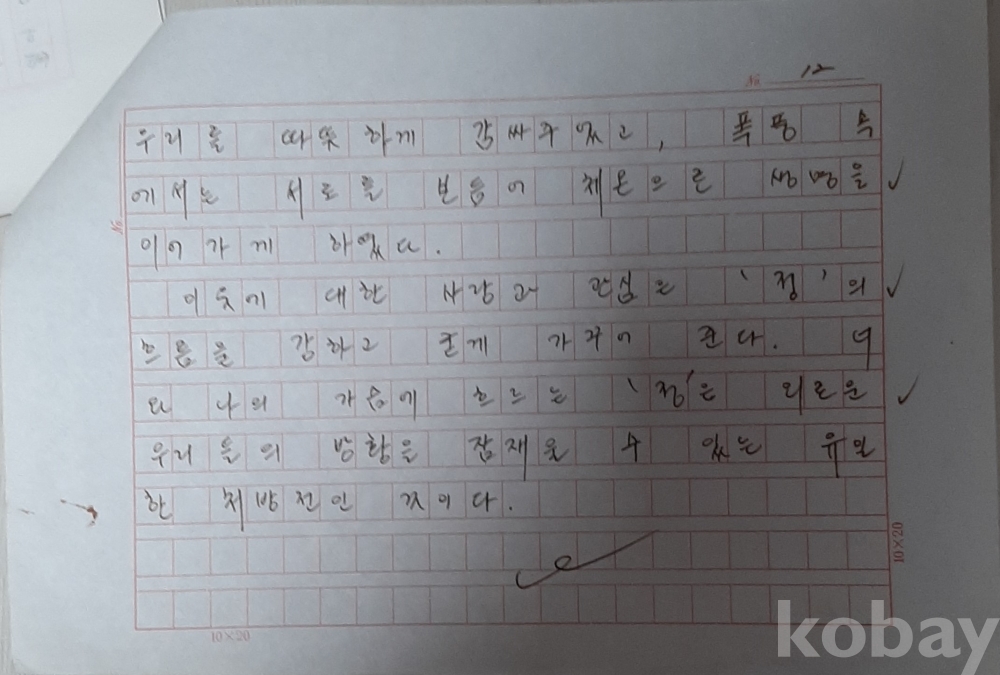 No. 12
우리를 따뜻하게 감싸주었고, 폭풍 속
에서는 서로를 보듬어 체온으로 생명을
이어가게 하였다.
이웃에 대한 사랑과 관심은 '정'의
흐름을 강하고 곧게 가꾸어 준다. 너
와 나의 가슴에 흐르는 '정'은 외로운
우리들의 방황을 잠재울 수 있는 유일
한 처방전인 것이다.
No.
10×20
10×20
kobay